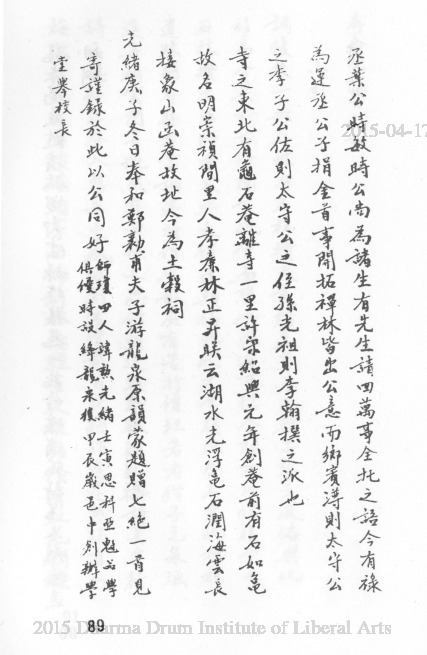 丞葉公時敏時公尚為諸生有先生請回萬事全托之語今有祿
為運丞公子捐金首事開拓禪林皆出公意而鄉賓濤則太守公
之李子公佐則太守公之侄孫光祖則李翰撰之派也
寺之東北有龜石菴離寺一里許宋紹興元年創菴前有石如龜
故名明崇禎間里人孝廉林正昇聯云湖水光浮龜石潤海雲長
接象山函菴故址今為土穀祠
光緒庚子冬日奉和鄭勳甫夫子游龍泉原韻蒙題贈七絕一首見
寄謹錄於此以公同好 師瓊四人諱勲光緒壬寅恩科亞魁品學
俱優時設絳龍泉後甲辰歲邑中創辦學
堂舉校長
2015-04-17
89
2015 Dharma Drum Institute of Liberal Arts